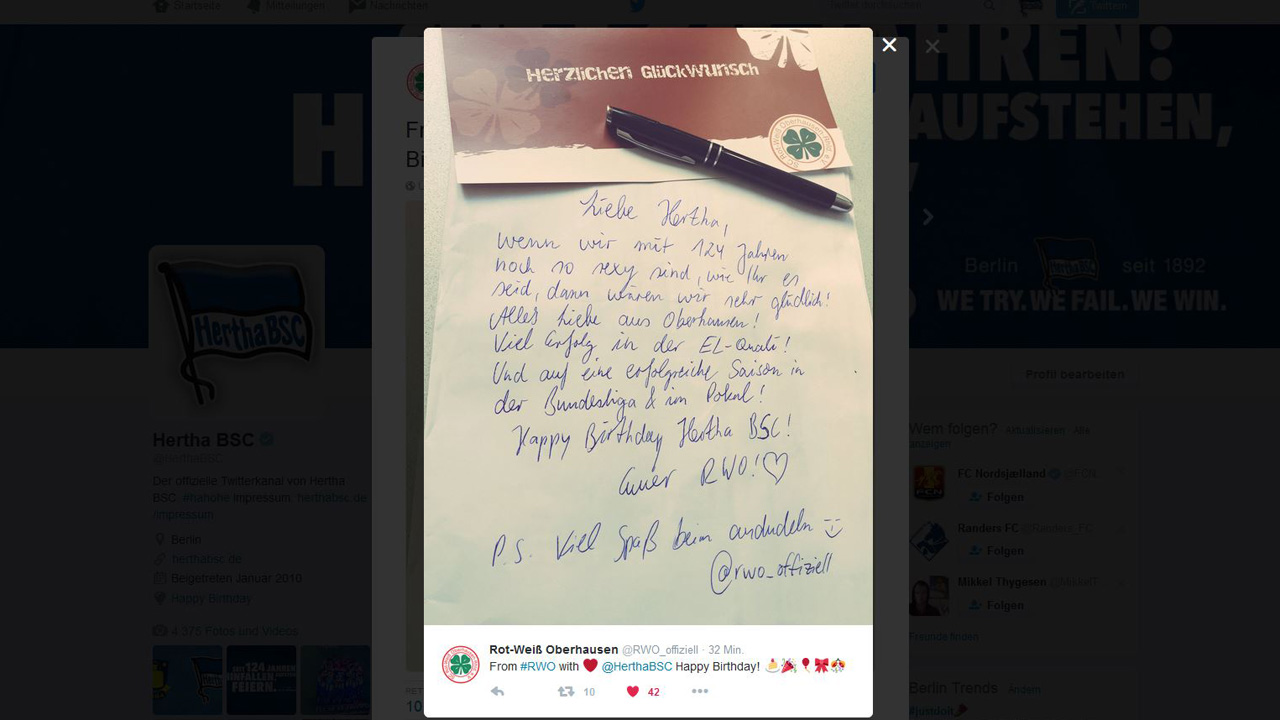 Startseite Mitteilungen Nachrichten
Twittern
HREN:
AUFSTEHEN,
Herzlichen Glückwunsch
SC Rot-Weiß Oberhausen-Rhld. e.V.
Liebe Hertha,
wenn wir mit 124 Jahren
noch so sexy sind, wie Ihr es
seid, dann wären wir sehr glücklich!
Alles Liebe aus Oberhausen!
Viel Erfolg in der EL-Quali!
Und auf eine erfolgreiche Saison in
der Bundesliga & im Pokal!
Happy Birthday Hertha BSC!
Euer RWO!♡
P.S. Viel Spaß beim
@rwo_offiziell
Rot-Weiß Oberhausen @RWO_offiziell · 32 Min.
From #RWO with ❤ @HerthaBSC Happy Birthday! 🎂🎉🎈🎀🎊
10 42
Berlin seit 1892
WE TRY. WE FAIL. WE WIN.
Profil bearbeiten
HerthaBSC
Hertha BSC
@HerthaBSC
Der offizielle Twitterkanal von Hertha
BSC. #hahohe Impressum: herthabsc.de
/impressum
Berlin
herthabsc.de
Beigetreten Januar 2010
Happy Birthday
4.375 Fotos und Videos
SEIT 124 JAHREN
FEIERN.
Wem folgen? Aktualisieren · Alle
anzeigen
FC Nordsjælland
Folgen
Randers FC @Randers_FC
Folgen
Mikkel Thygesen @MikkelT
Folgen
Freunde finden
Berlin Trends · Ändern
#justdoit